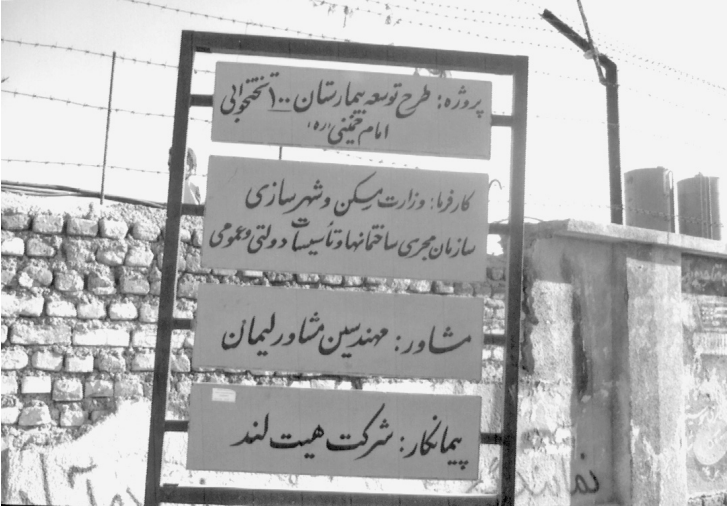 پروژه: طرح توسعه بیمارستان ۱۰۰ تختخوابی
امام خمینی (ره)
کارفرما: وزارت مسکن و شهرسازی
سازمان مجری ساختمانها و تأسیسات دولتی و عمومی
مشاور: مهندسین مشاور لیمان
پیمانکار: شرکت هیت لند